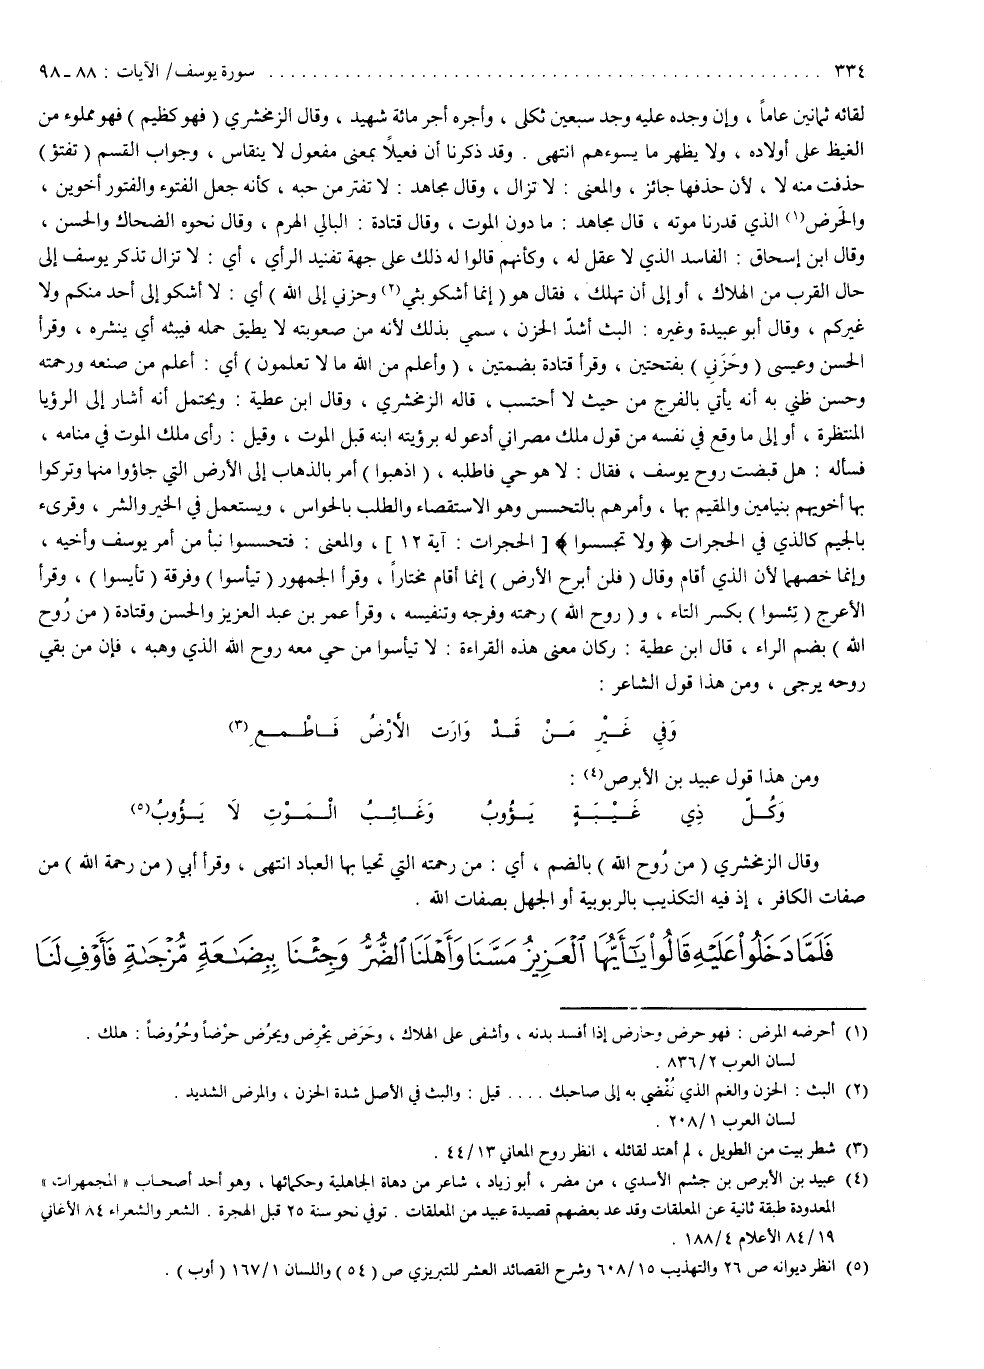 ٣٣٤ ................................................ سورة يوسف/ الآيات : ٨٨ ـ ٩٨
لقائه ثمانين عاماً ، وإن وجده عليه وجد سبعين ثكلى ، وأجره أجر مائة شهيد ، وقال الزمخشري ( فهو كظيم ) فهو مملوء من
الغيظ على أولاده ، ولا يظهر ما يسوءهم انتهى . وقد ذكرنا أن فعيلاً بمعنى مفعول لا ينقاس ، وجواب القسم ( تفتؤ )
حذفت منه لا ، لأن حذفها جائز ، والمعنى : لا تزال ، وقال مجاهد : لا تفتر من حبه ، كأنه جعل الفتوء والفتور أخوين ،
والحَرض(١) الذي قدرنا موته ، قال مجاهد : ما دون الموت ، وقال قتادة : البالي الهرم ، وقال نحوه الضحاك والحسن ،
وقال ابن إسحاق : الفاسد الذي لا عقل له ، وكأنهم قالوا له ذلك على جهة تفنيد الرأي ، أي : لا تزال تذكر يوسف إلى
حال القرب من الهلاك ، أو إلى أن تهلك ، فقال هو ( إنما أشكو بثي(٢) وحزني إلى الله ) أي : لا أشكو إلى أحد منكم ولا
غيركم ، وقال أبو عبيدة وغيره : البث أشدّ الحزن ، سمي بذلك لأنه من صعوبته لا يطيق حمله فيبثه أي ينشره ، وقرأ
الحسن وعيسى ( وحَزَنِي ) بفتحتين ، وقرأ قتادة بضمتين ، ( وأعلم من الله ما لا تعلمون ) أي : أعلم من صنعه ورحمته
وحسن ظني به أنه يأتي بالفرج من حيث لا أحتسب ، قاله الزمخشري ، وقال ابن عطية : ويحتمل أنه أشار إلى الرؤيا
المنتظرة ، أو إلى ما وقع في نفسه من قول ملك مصر إني أدعو له برؤيته ابنه قبل الموت ، وقيل : رأى ملك الموت في منامه ،
فسأله : هل قبضت روح يوسف ، فقال : لا هو حي فاطلبه ، ( اذهبوا ) أمر بالذهاب إلى الأرض التي جاؤوا منها وتركوا
بها أخويهم بنيامين والمقيم بها ، وأمرهم بالتحسس وهو الاستقصاء والطلب بالحواس ، ويستعمل في الخير والشر ، وقرىء
بالجيم كالذي في الحجرات ﴿ ولا تجسسوا ﴾ [ الحجرات : آية ١٢ ] ، والمعنى : فتحسسوا نبأ من أمر يوسف وأخيه ،
وإنما خصهما لأن الذي أقام وقال ( فلن أبرح الأرض ) إنما أقام مختاراً ، وقرأ الجمهور ( تيأسوا ) وفرقة ( تأيسوا ) ، وقرأ
الأعرج ( تِئسوا ) بكسر التاء ، و ( روح الله ) رحمته وفرجه وتنفيسه ، وقرأ عمر بن عبد العزيز والحسن وقتادة ( من رُوح
الله ) بضم الراء ، قال ابن عطية : وكان معنى هذه القراءة : لا تيأسوا من حي معه روح الله الذي وهبه ، فإن من بقي
روحه يرجى ، ومن هذا قول الشاعر :
وَفِي غَــيْرِ مَــنْ قَــدْ وَارَت الأَرْضُ فَــاطْــمــعِ(٣)
ومن هذا قول عبيد بن الأبرص(٤) :
وَكُــلّ ذِي غَــيْــبَــةٍ يَــؤُوبُ وَغَــائِــبُ الْــمَــوْتِ لَا يَــؤُوبُ(٥)
وقال الزمخشري ( من رُوح الله ) بالضم ، أي : من رحمته التي تحيا بها العباد انتهى ، وقرأ أبي ( من رحمة الله ) من
صفات الكافر ، إذ فيه التكذيب بالربوبية أو الجهل بصفات الله .
فَلَمَّا دَخَلُواْ عَلَيْهِ قَالُواْ يَـٰٓأَيُّهَا ٱلْعَزِيزُ مَسَّنَا وَأَهْلَنَا ٱلضُّرُّ وَجِئْنَا بِبِضَـٰعَةٍ مُّزْجَىٰةٍ فَأَوْفِ لَنَا
(١) أحرضه المرض : فهو حرض وحارض إذا أفسد بدنه ، وأشفى على الهلاك ، وحَرَض يَحْرِض ويحرُض حرْضاً وحُرُوضاً : هلك .
لسان العرب ٨٣٦/٢ .
(٢) البث : الحزن والغم الذي تُفْضي به إلى صاحبك .... قيل : والبث في الأصل شدة الحزن ، والمرض الشديد .
لسان العرب ٢٠٨/١ .
(٣) شطر بيت من الطويل ، لم أهتد لقائله ، انظر روح المعاني ٤٤/١٣ .
(٤) عبيد بن الأبرص بن جشم الأسدي ، من مضر ، أبو زياد ، شاعر من دهاة الجاهلية وحكمائها ، وهو أحد أصحاب « المجمهرات »
المعدودة طبقة ثانية عن المعلقات وقد عد بعضهم قصيدة عبيد من المعلقات . توفي نحو سنة ٢٥ قبل الهجرة . الشعر والشعراء ٨٤ الأغاني
٨٤/١٩ الأعلام ١٨٨/٤ .
(٥) انظر ديوانه ص ٢٦ والتهذيب ٦٠٨/١٥ وشرح القصائد العشر للتبريزي ص ( ٥٤ ) واللسان ١٦٧/١ ( أوب ) .